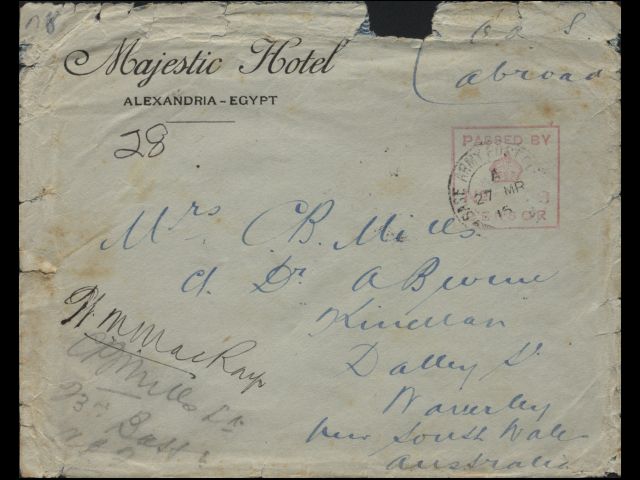 Majestic Hotel
ALEXANDRIA - EGYPT
28
abroad
PASSED BY
BASE ARMY POST
A
27 MR
15
Mrs C.B. Mills
c/. Dr A Bowne
Dalley St
Waverley
New South Wales
Australia
W.M. MacKay
C.B. Mills Lt
13th Batt